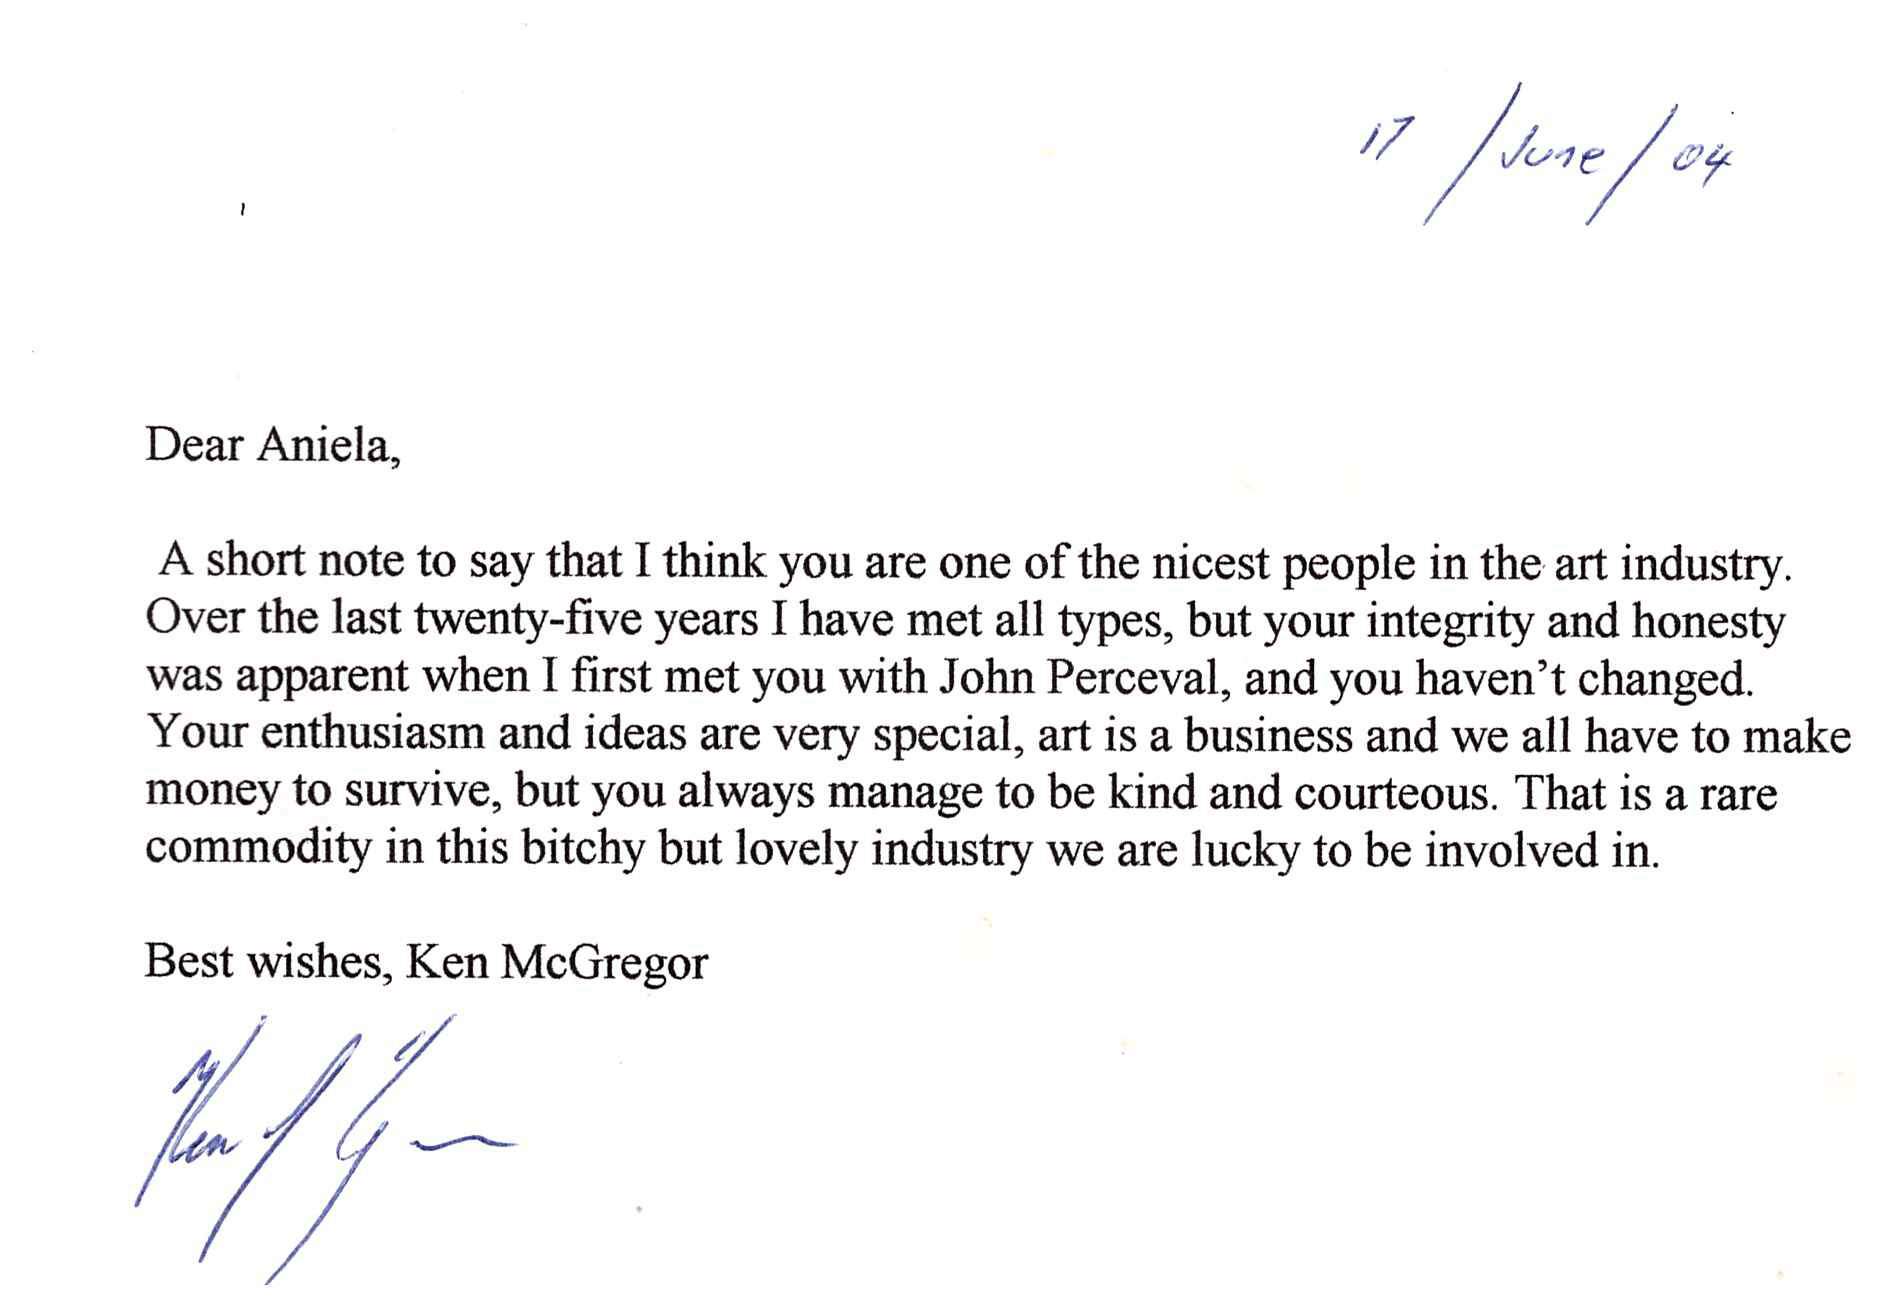 17/June/04
Dear Aniela,
A short note to say that I think you are one of the nicest people in the art industry.
Over the last twenty-five years I have met all types, but your integrity and honesty
was apparent when I first met you with John Perceval, and you haven't changed.
Your enthusiasm and ideas are very special, art is a business and we all have to make
money to survive, but you always manage to be kind and courteous. That is a rare
commodity in this bitchy but lovely industry we are lucky to be involved in.
Best wishes, Ken McGregor
Ken